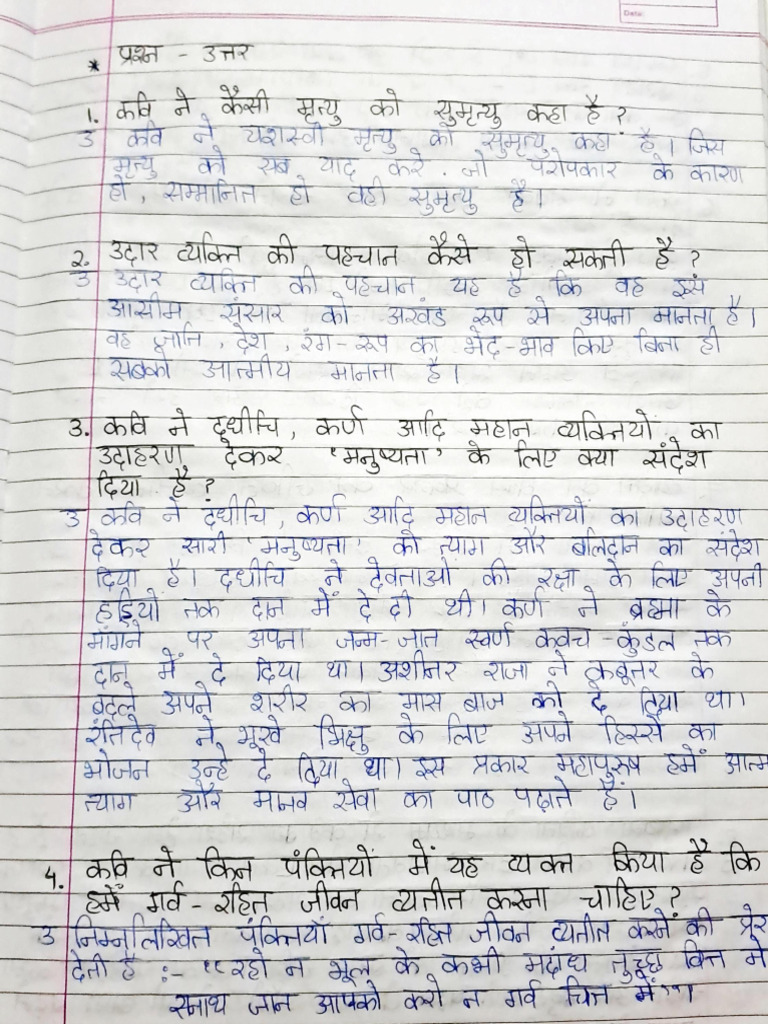 Date:
* प्रश्न - उत्तर
1. कवि ने कैसी मृत्यु को सुमृत्यु कहा है ?
उ कवि ने यशस्वी मृत्यु को सुमृत्यु कहा है। जिस
मृत्यु को सब याद करे . जो परोपकार के कारण
हो, सम्मानित हो वही सुमृत्यु है।
2. उदार व्यक्ति की पहचान कैसे हो सकती है ?
उ उदार व्यक्ति की पहचान यह है कि वह इस
आसीम संसार को अखंड रूप से अपना मानता है।
वह जाति, देश, रंग-रूप का भेद-भाव किए बिना ही
सबको आत्मीय मानता है।
3. कवि ने दधीचि, कर्ण आदि महान व्यक्तियों का
उदाहरण देकर 'मनुष्यता' के लिए क्या संदेश
दिया है ?
उ कवि ने दंधीचि, कर्ण आदि महान व्यक्तियों का उदाहरण
देकर सारी 'मनुष्यता' को त्याग और बलिदान का संदेश
दिया है। दधीचि ने देवताओं की रक्षा के लिए अपनी
हड्डियों तक दान में दे दी थी। कर्ण ने ब्रह्मा के
मांगने पर अपना जन्म-जात स्वर्ण कवच-कुंडल तक
दान में दे दिया था। अशीनर राजा ने कबूतर के
बदले अपने शरीर का मास बाज को दे दिया था।
रंतिदेव ने भूखे भिक्षु के लिए अपने हिस्से का
भोजन उन्हे दे दिया था। इस प्रकार महापुरुष हमें आत्म
त्याग और मानव सेवा का पाठ पढ़ाते हैं।
4. कवि ने किन पंक्तियों में यह व्यक्त किया है कि
हमें गर्व-रहित जीवन व्यतीत करना चाहिए ?
उ निम्नलिखित पंक्तियाँ गर्व-रहित जीवन व्यतीत करने की प्रेर
देती है :- "रहो न भूल के कभी मदांध तुच्छ वित्त में
सनाथ जान आपको करो न गर्व चित्त में"।